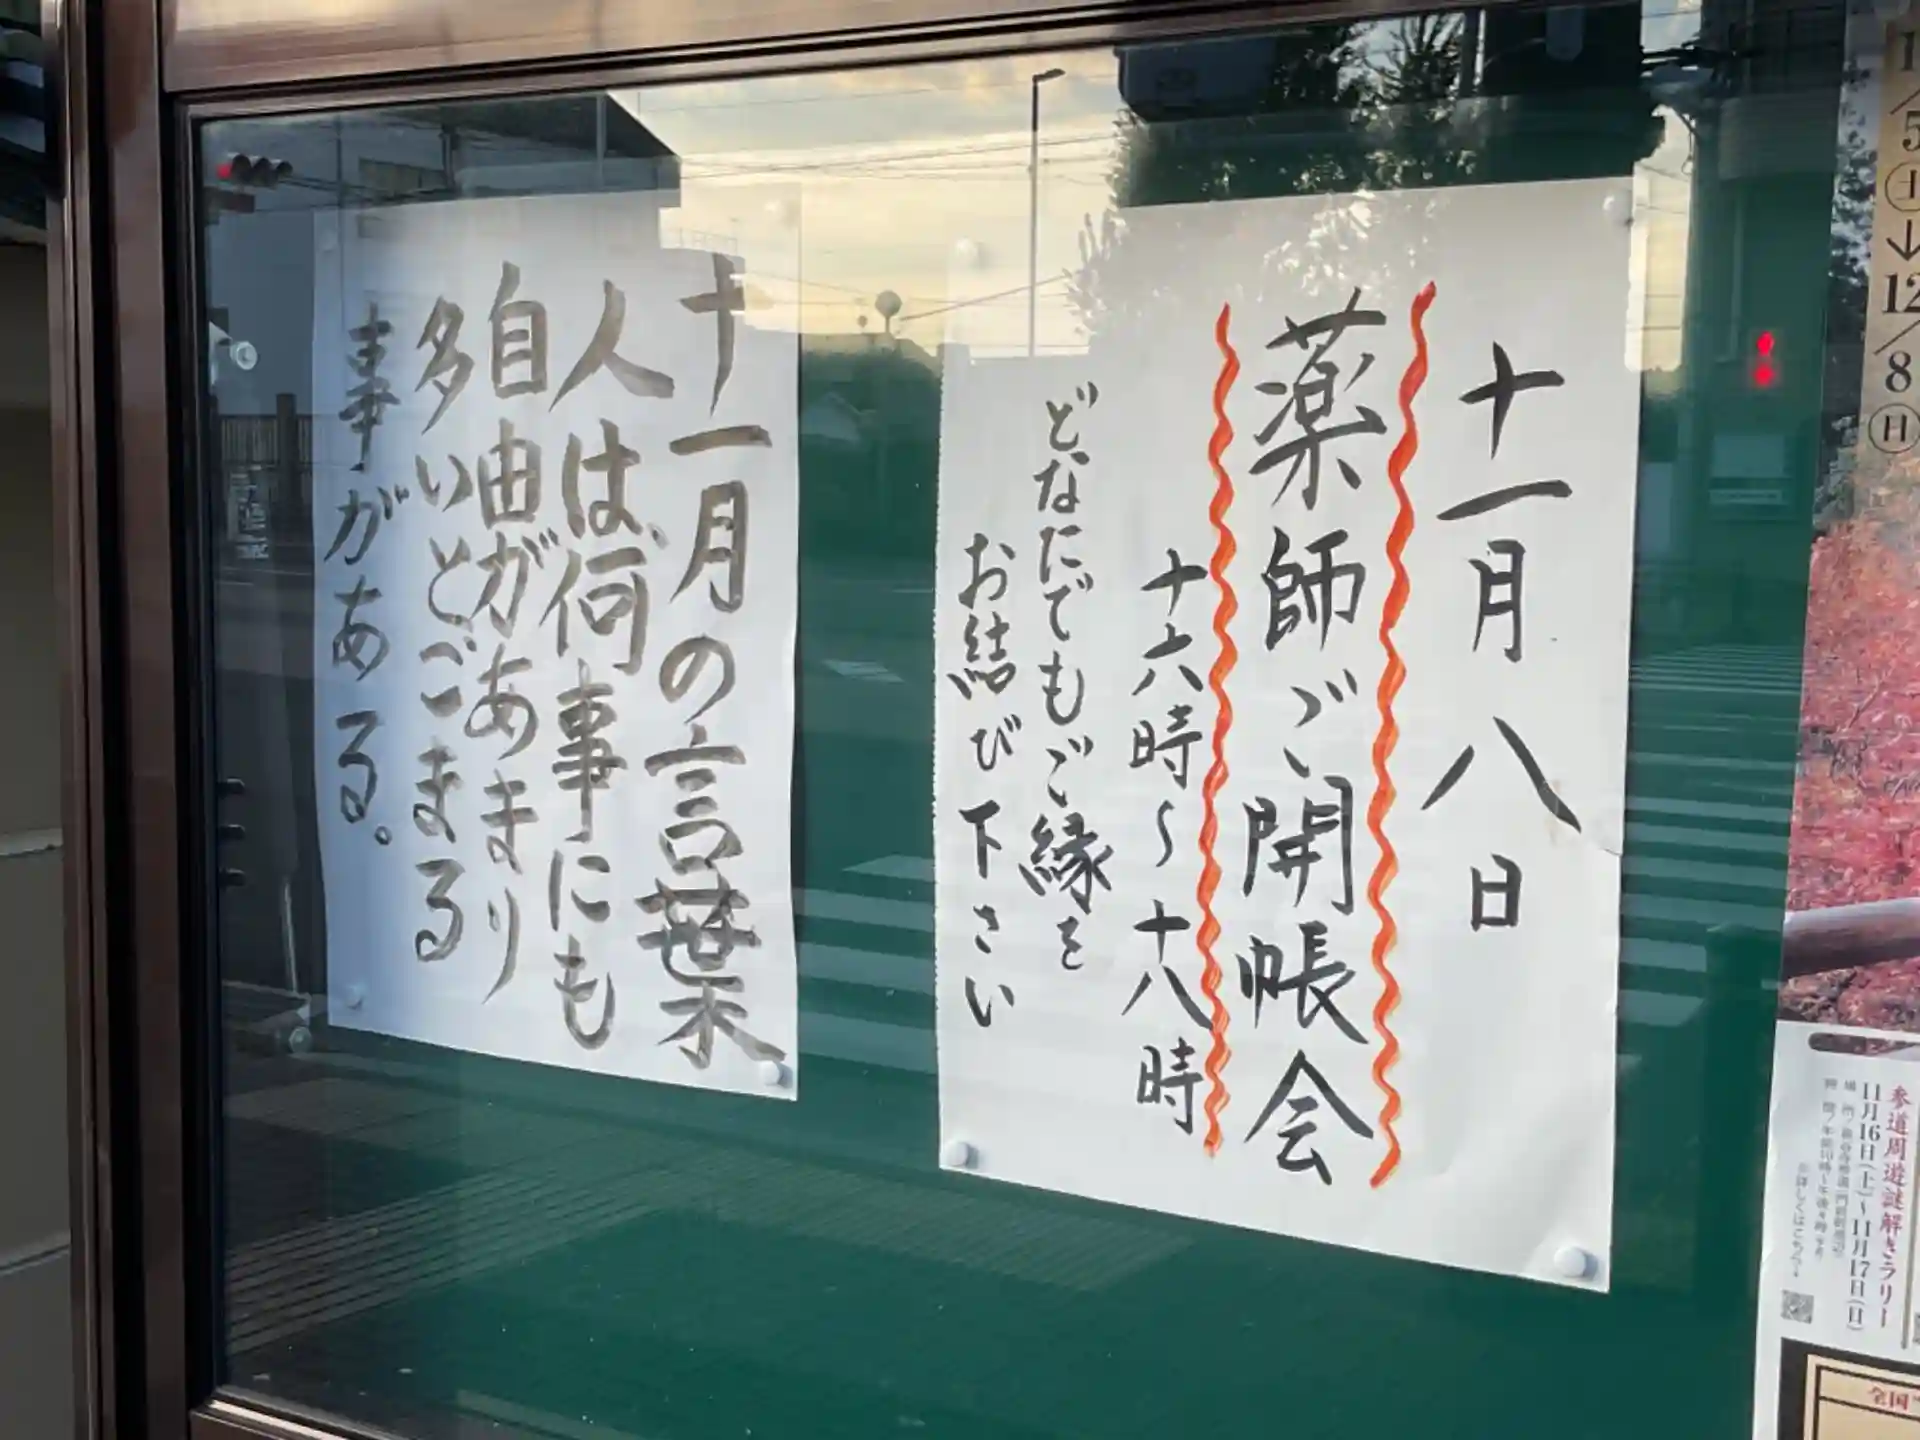 十一月八日
薬師ご開帳会
十六時〜十八時
どなたでもご縁を
お結び下さい
十一月の言葉
人は何事にも
自由があまり
多いとごまる
事がある。
1/5㊏↓12/8㊐
参道周遊謎解きラリー
11月16日(土)〜11月17日(日)
※詳しくはこちら→
全国